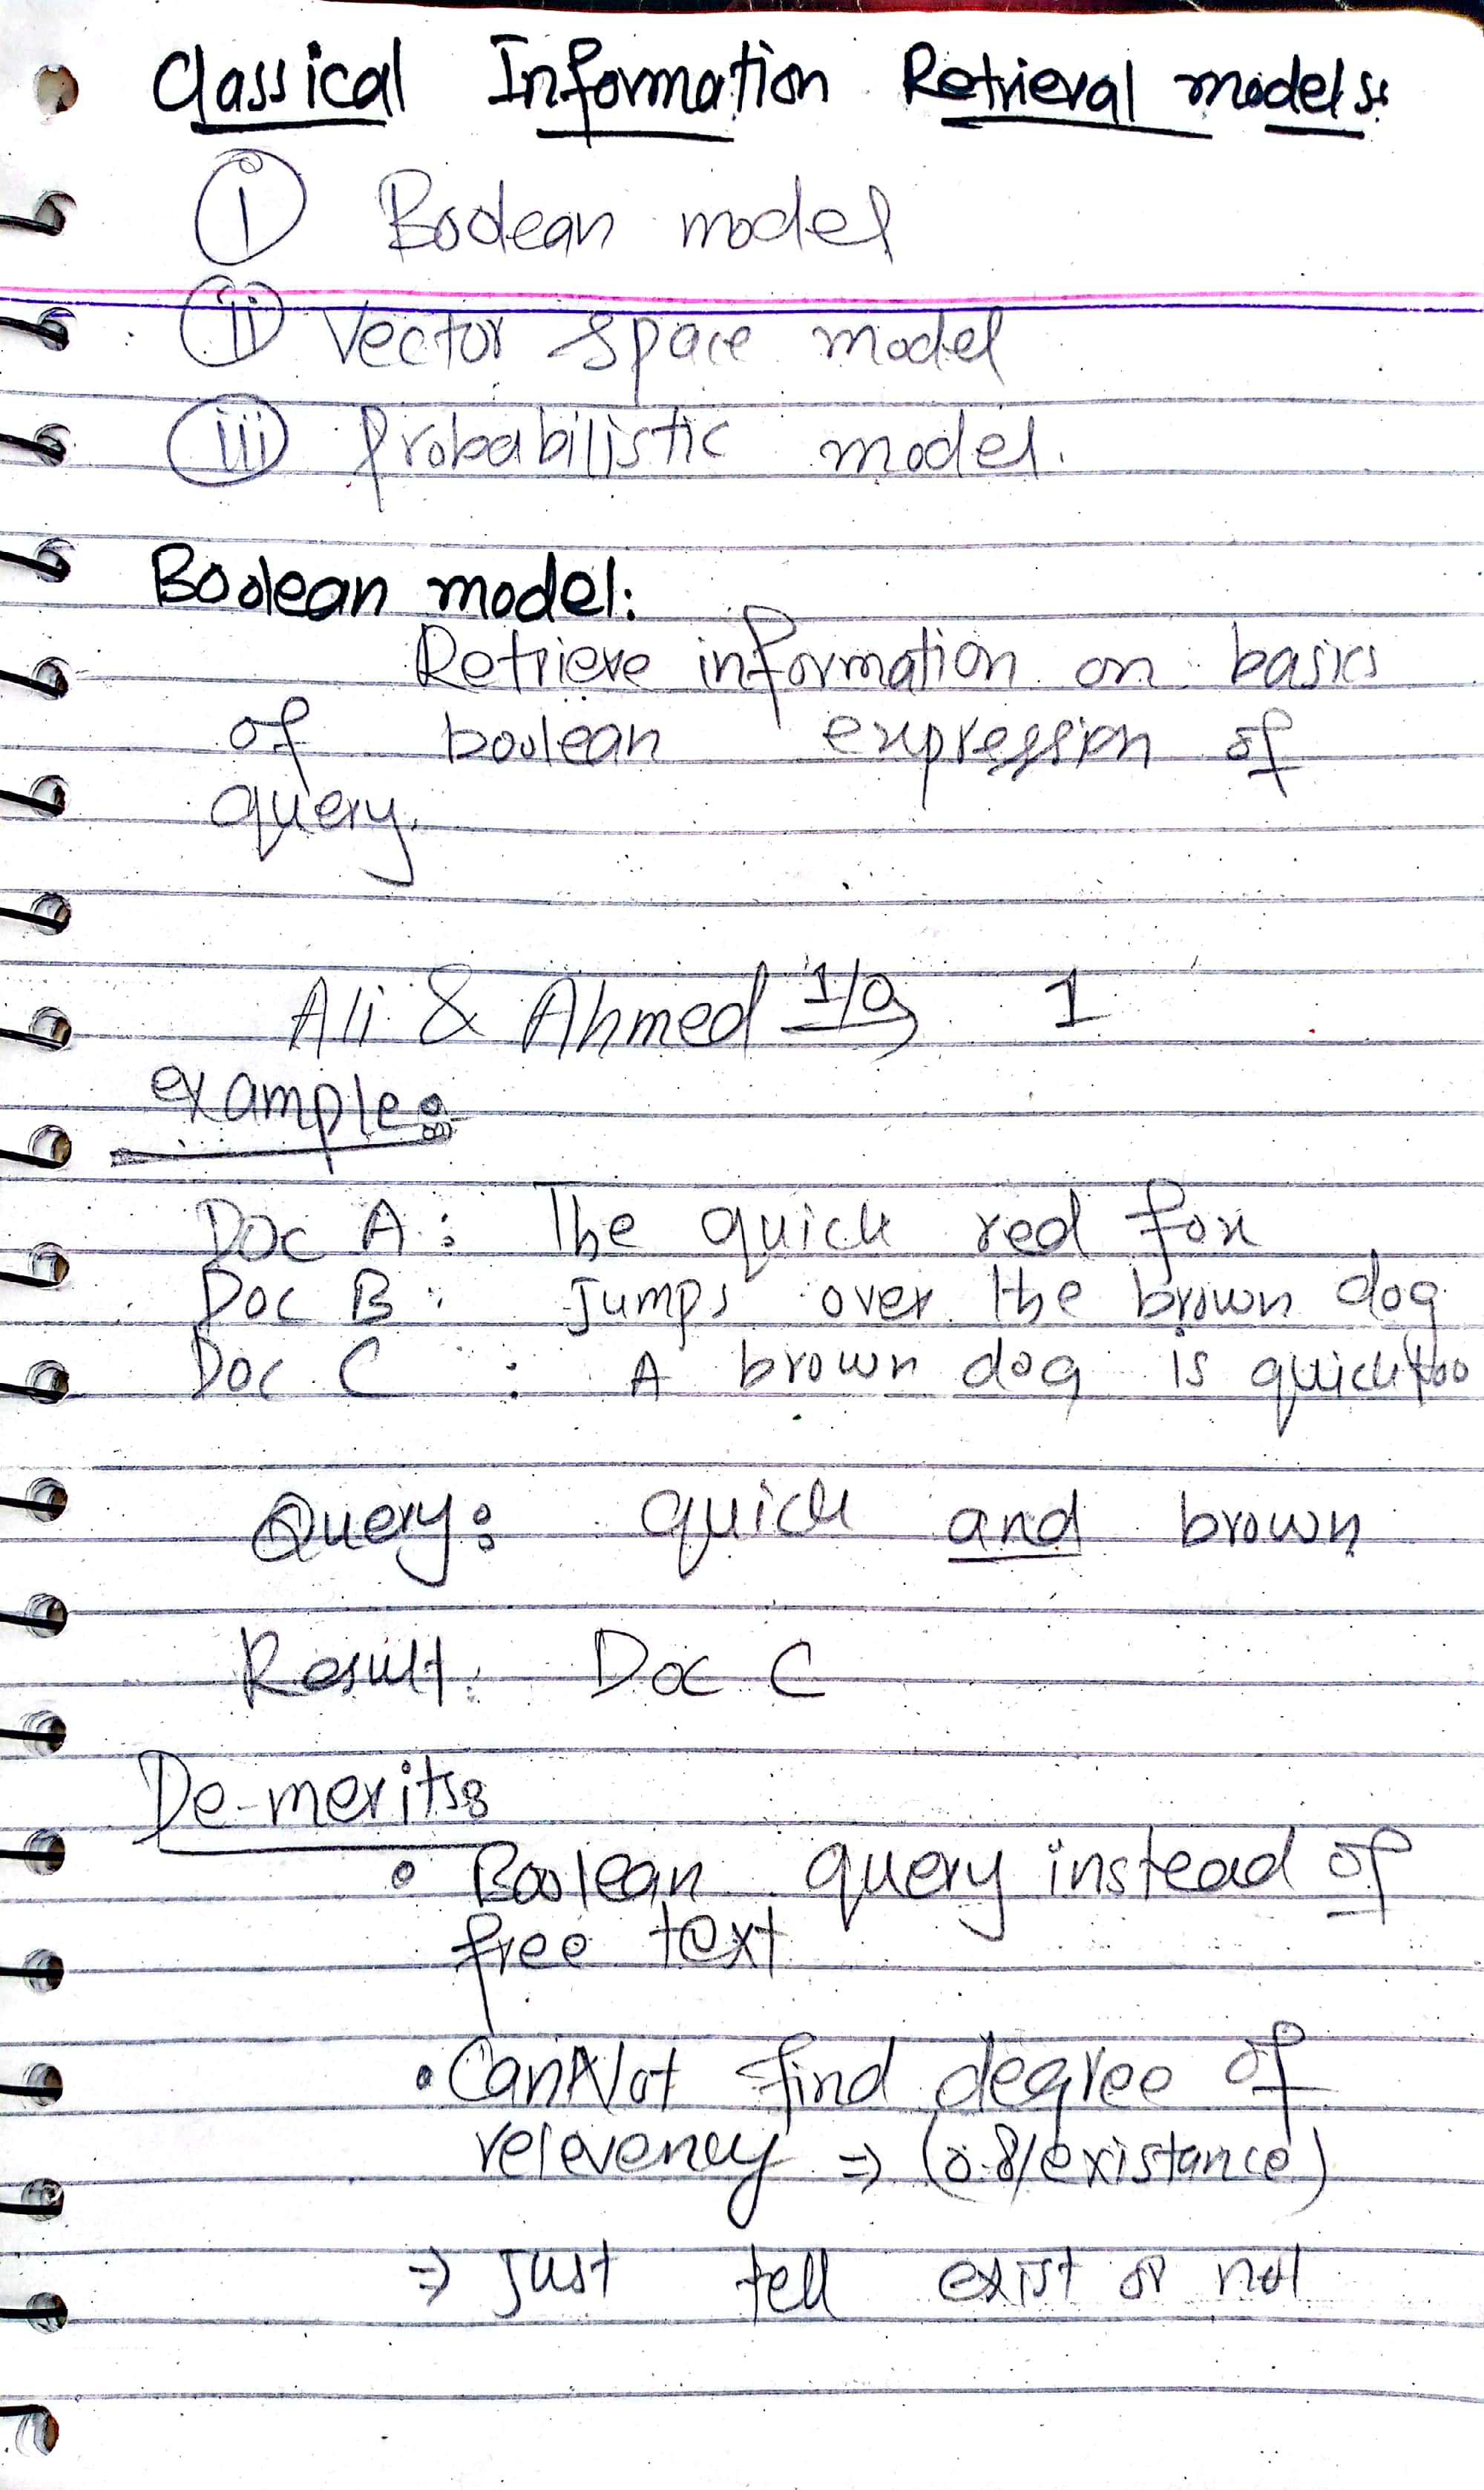 Classical Information Retrieval models:
(i) Boolean model
(ii) Vector space model
(iii) Probabilistic model.
Boolean model:
Retrieve information on basics
of boolean expression of
query.
Ali & Ahmed 1/0 1
example:
Doc A: The quick red fox
Doc B: Jumps over the brown dog
Doc C: A brown dog is quick too
Query: quick and brown
Result: Doc C
De-merits:
• Boolean query instead of
free text
• CanNot find degree of
relevency ⇒ (0.8/existance)
⇒ Just tell exist or not